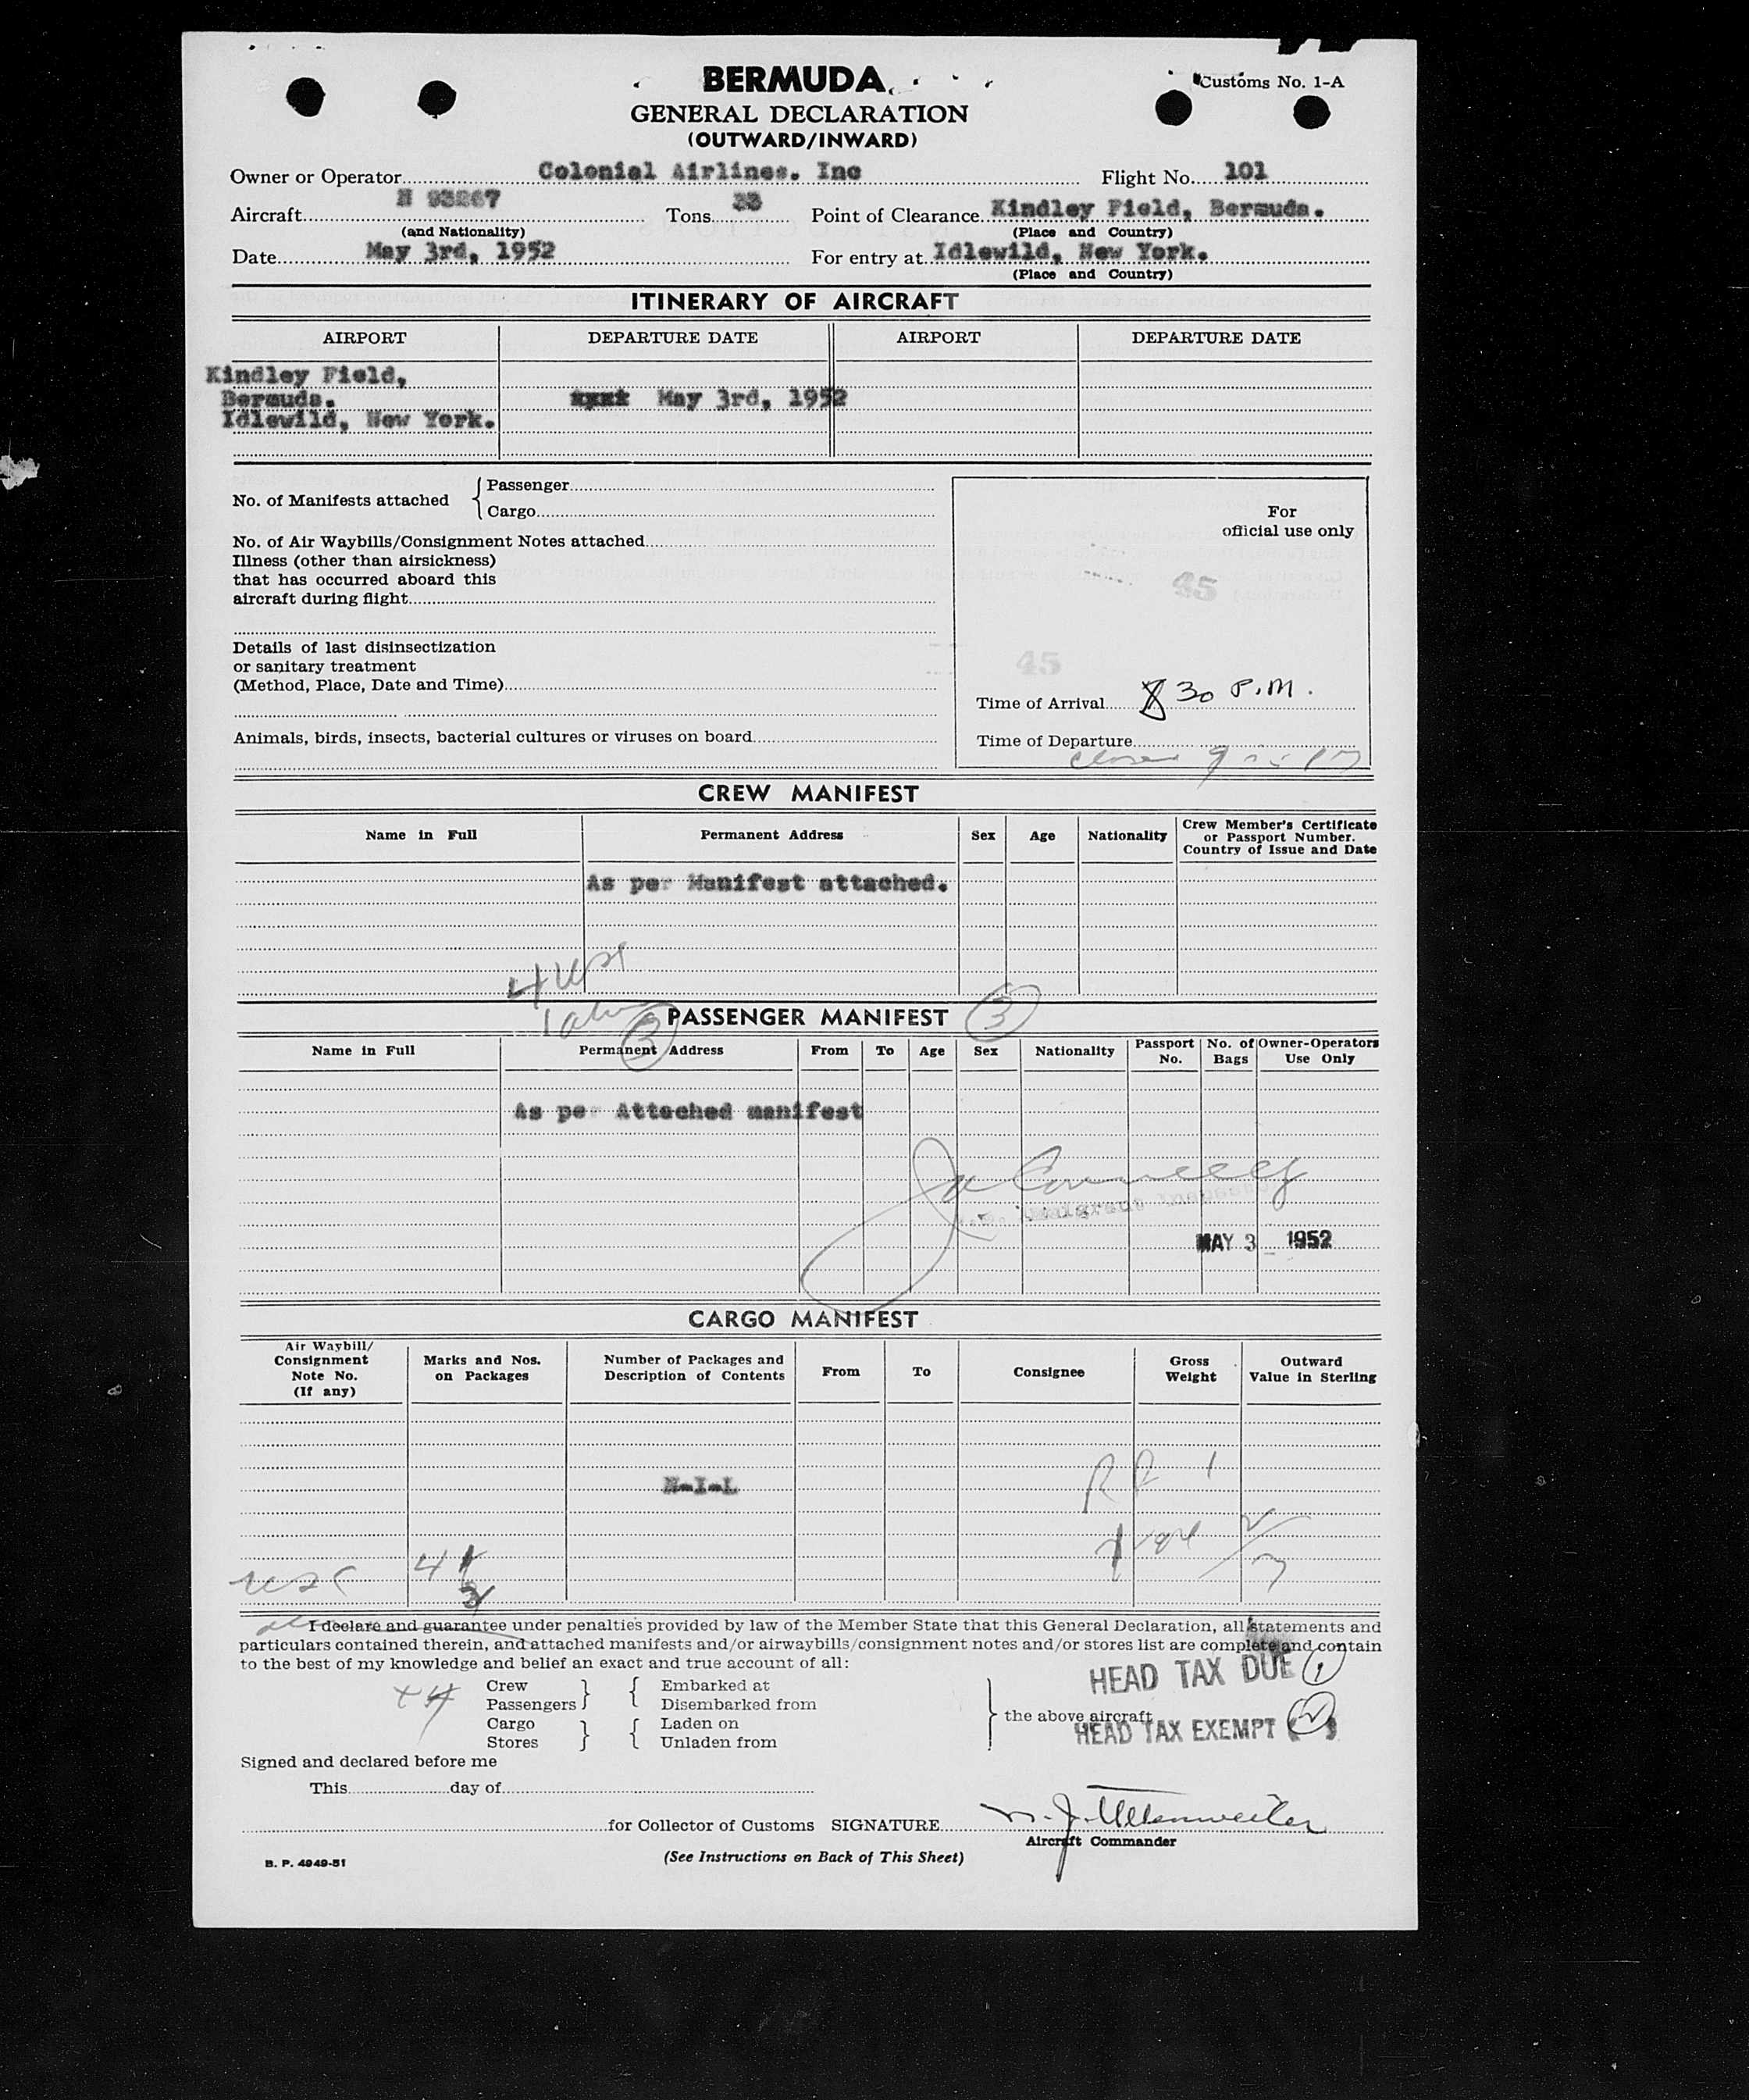 BERMUDA
Customs No. 1-A
GENERAL DECLARATION
(OUTWARD/INWARD)
Owner or Operator Colonial Airlines. Inc Flight No. 101
Aircraft N 93267 Tons 33 Point of Clearance Kindley Field, Bermuda.
(and Nationality) (Place and Country)
Date May 3rd, 1952 For entry at Idlewild, New York.
(Place and Country)
ITINERARY OF AIRCRAFT
AIRPORT DEPARTURE DATE AIRPORT DEPARTURE DATE
Kindley Field,
Bermuda. May 3rd, 1952
Idlewild, New York.
No. of Manifests attached { Passenger
Cargo
For
official use only
No. of Air Waybills/Consignment Notes attached
Illness (other than airsickness)
that has occurred aboard this
aircraft during flight
45
Details of last disinsectization
or sanitary treatment
(Method, Place, Date and Time)
45
Time of Arrival 8 30 P.M.
Animals, birds, insects, bacterial cultures or viruses on board
Time of Departure
CREW MANIFEST
Name in Full Permanent Address Sex Age Nationality Crew Member's Certificate or Passport Number. Country of Issue and Date
As per Manifest attached.
4 USC
PASSENGER MANIFEST
3 3
Name in Full Permanent Address From To Age Sex Nationality Passport No. No. of Bags Owner-Operators Use Only
As per Attached manifest
MAY 3 1952
CARGO MANIFEST
Air Waybill/ Consignment Note No. (If any) Marks and Nos. on Packages Number of Packages and Description of Contents From To Consignee Gross Weight Outward Value in Sterling
RP 1
N-I-L
USC 4
I declare and guarantee under penalties provided by law of the Member State that this General Declaration, all statements and
particulars contained therein, and attached manifests and/or airwaybills/consignment notes and/or stores list are complete and contain
to the best of my knowledge and belief an exact and true account of all:
HEAD TAX DUE 1
Crew } { Embarked at
Passengers } { Disembarked from
Cargo } { Laden on } the above aircraft
Stores } { Unladen from
HEAD TAX EXEMPT (2)
Signed and declared before me
This day of
for Collector of Customs SIGNATURE
Aircraft Commander
B. P. 4949-51
(See Instructions on Back of This Sheet)